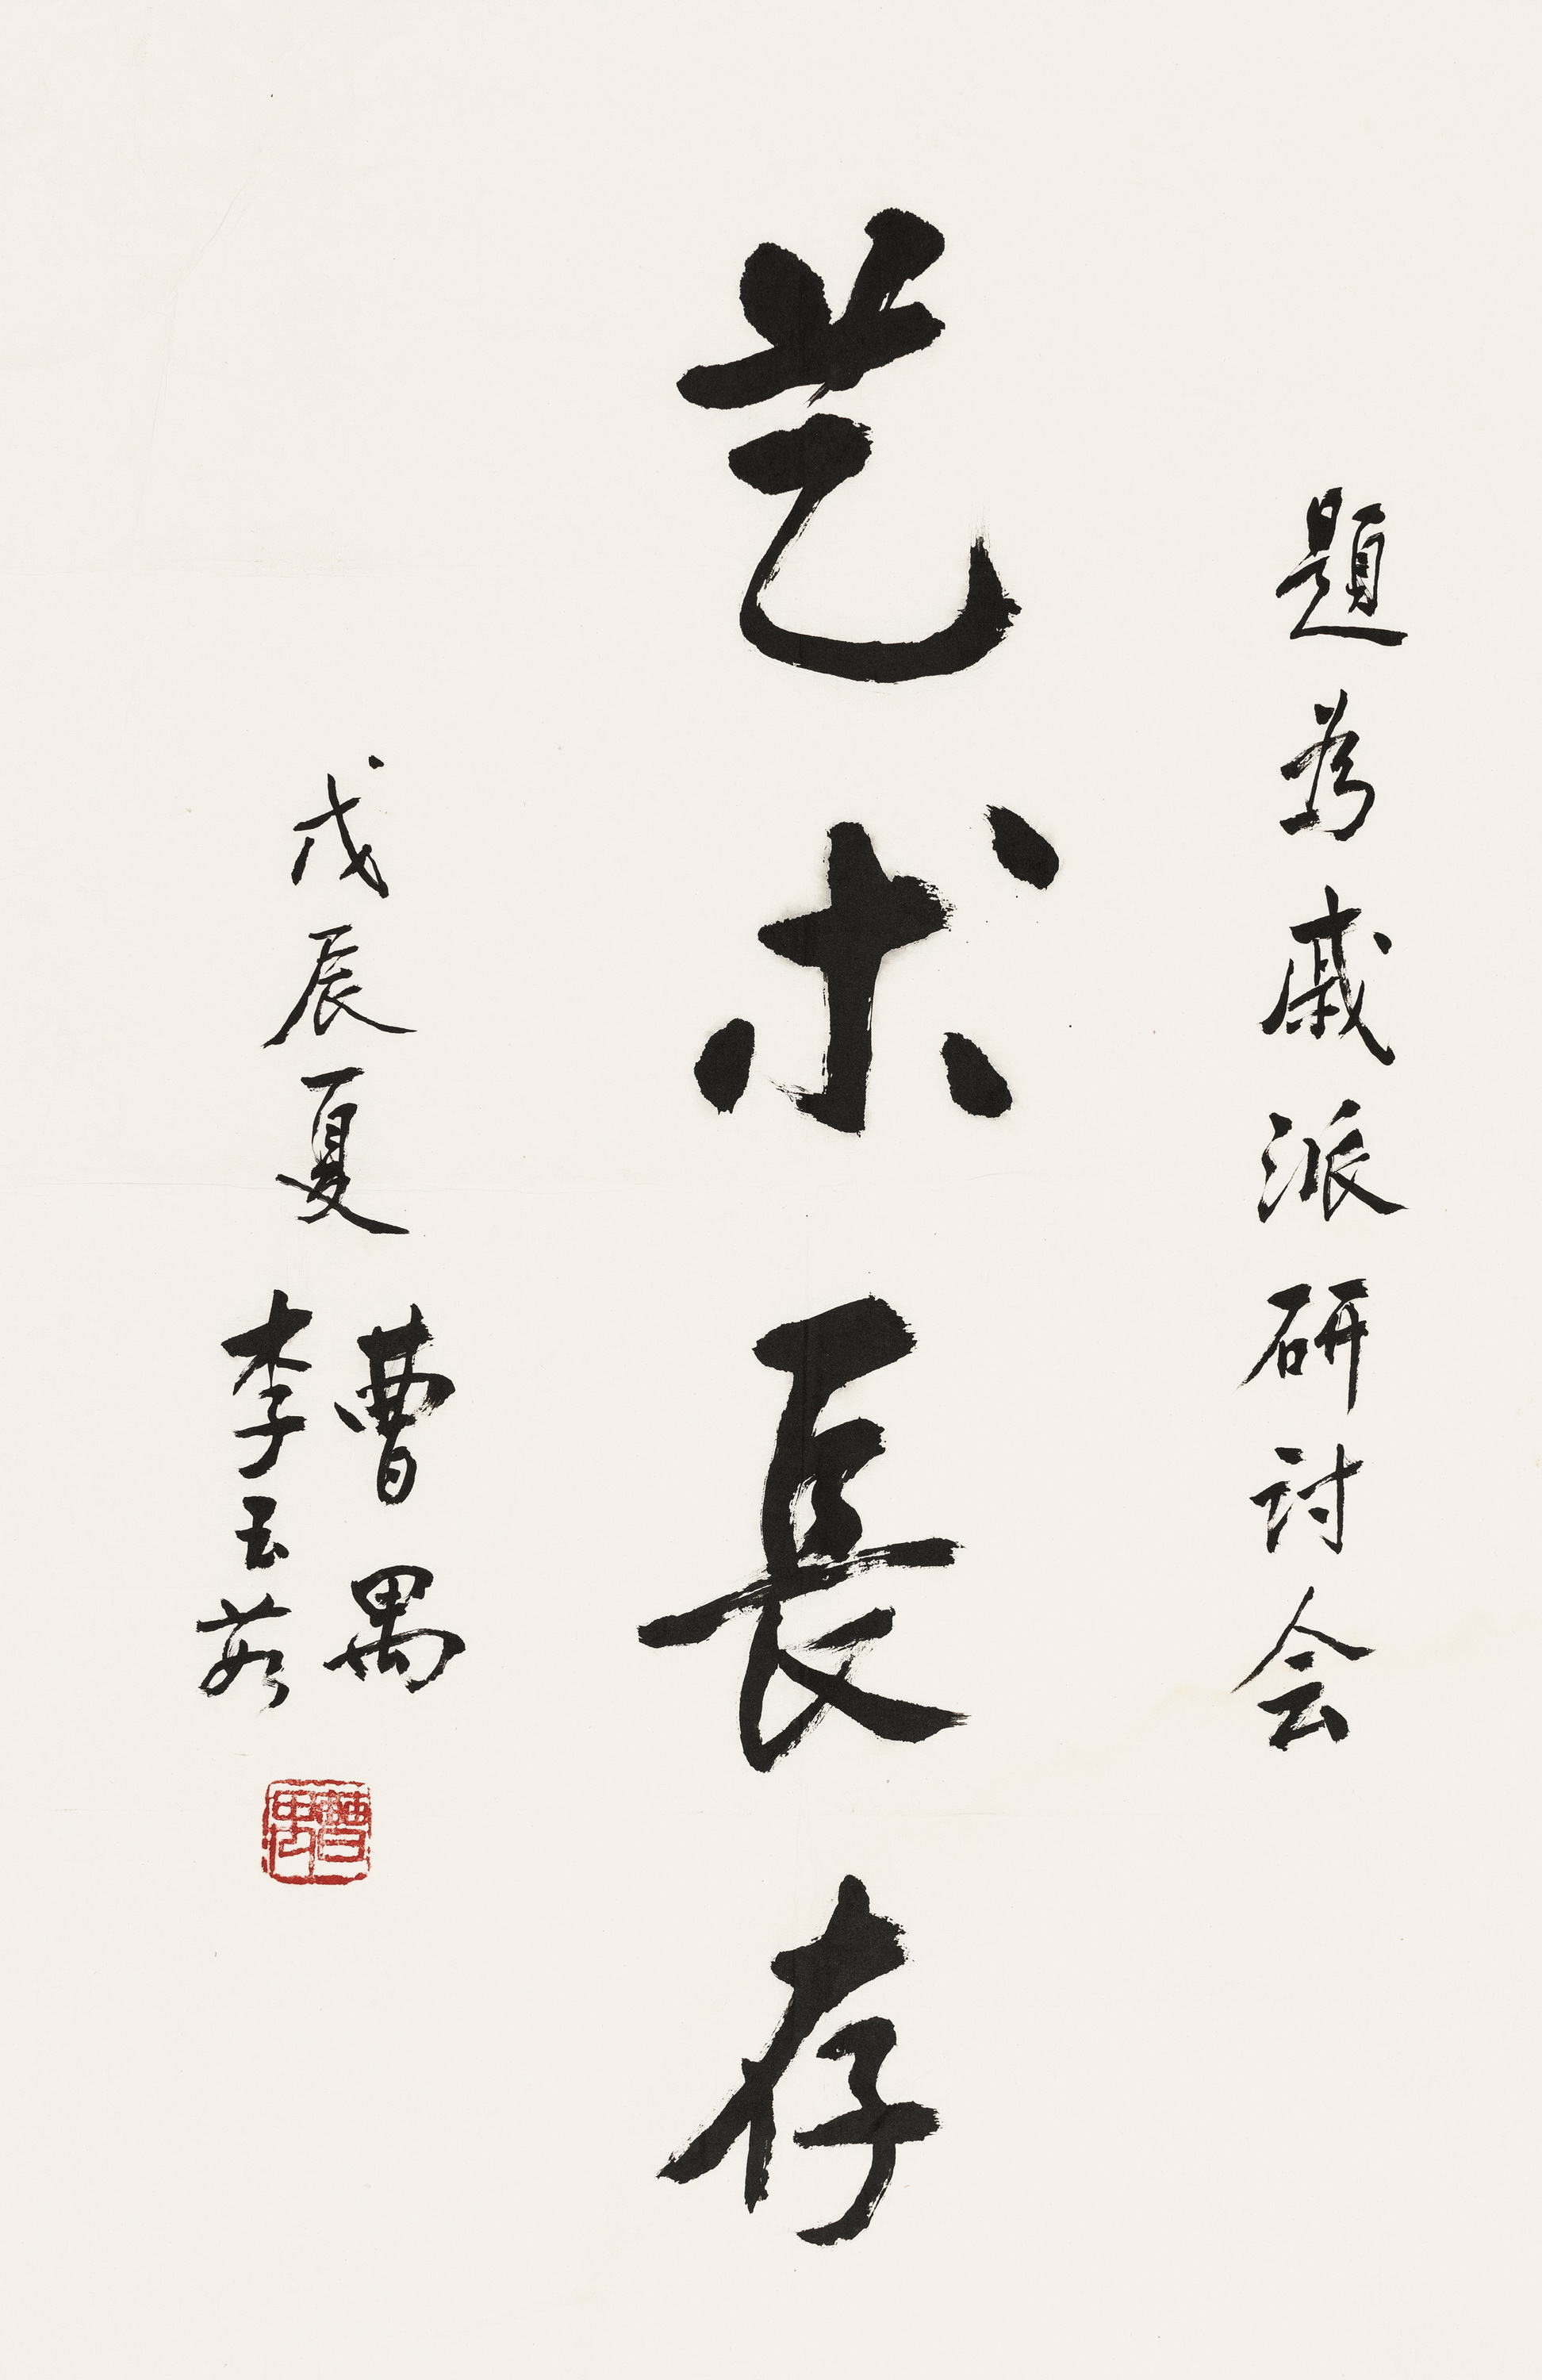 題为戚派研讨会
艺术長存
戊辰夏
曹禺
李玉茹
曹禺